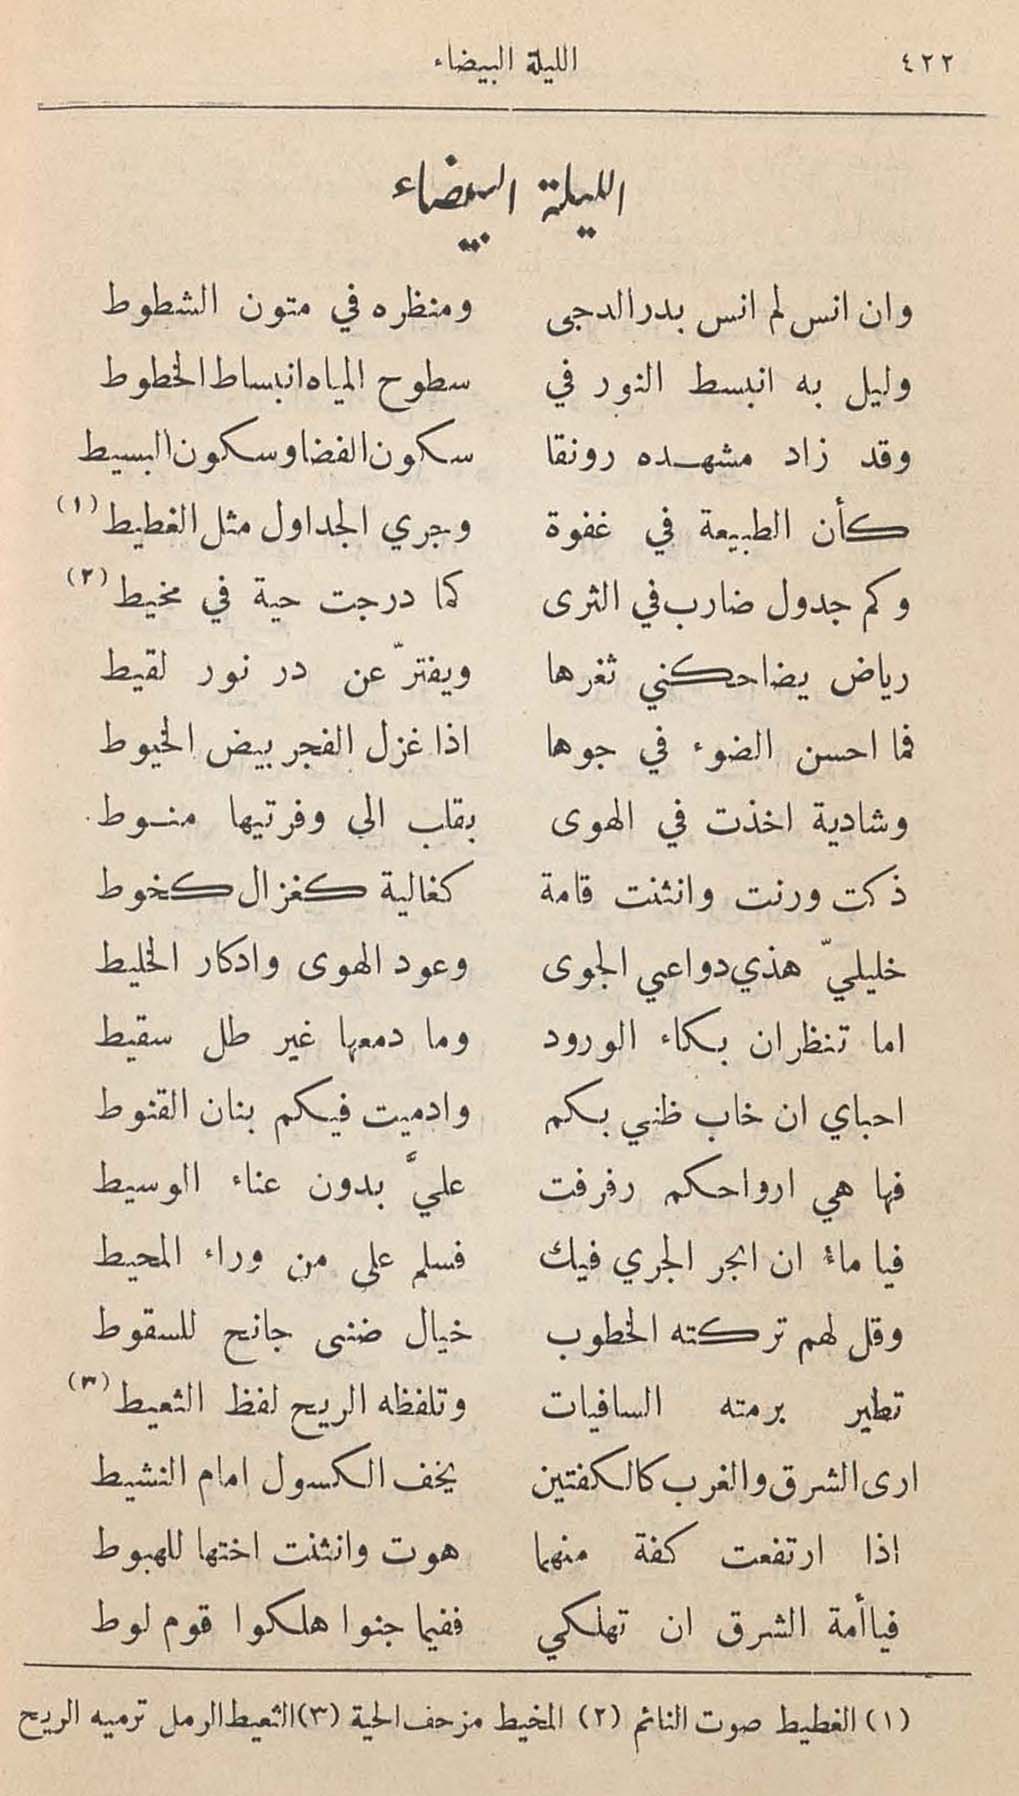 ٤٢٢ الليلة البيضاء
الليلة البيضاء
وان انس لم انس بدر الدجى ومنظره في متون الشطوط
وليل به انبسط النور في سطوح المياه انبساط الخطوط
وقد زاد مشهده رونقا سكون الفضا وسكون البسيط
كأن الطبيعة في غفوة وجري الجداول مثل الغطيط (١)
وكم جدول ضارب في الثرى كما درجت حية في مخيط (٢)
رياض يضاحكني ثغرها ويفترّ عن در نور لقيط
فما احسن الضوء في جوها اذا غزل الفجر بيض الخيوط
وشادية اخذت في الهوى بقلب الى وفرتيها منوط
ذكت ورنت وانثنت قامة كغالية كغزال كخوط
خليليّ هذي دواعي الجوى وعود الهوى وادكار الخليط
اما تنظران بكاء الورود وما دمعها غير طل سقيط
احباي ان خاب ظني بكم وادميت فيكم بنان القنوط
فها هي ارواحكم رفرفت عليَّ بدون عناء الوسيط
فيا ماء ان انجر الجري فيك فسلم على من وراء المحيط
وقل لهم تركته الخطوب خيال ضنى جانح للسقوط
تطير برمته السافيات وتلفظه الريح لفظ الثعيط (٣)
ارى الشرق والغرب كالكفتين يخف الكسول امام النشيط
اذا ارتفعت كفة منهما هوت وانثنت اختها للهبوط
فيا أمة الشرق ان تهلكي ففيما جنوا هلكوا قوم لوط
(١) الغطيط صوت النائم (٢) المخيط مزحف الحية (٣) الثعيط الرمل ترميه الريح